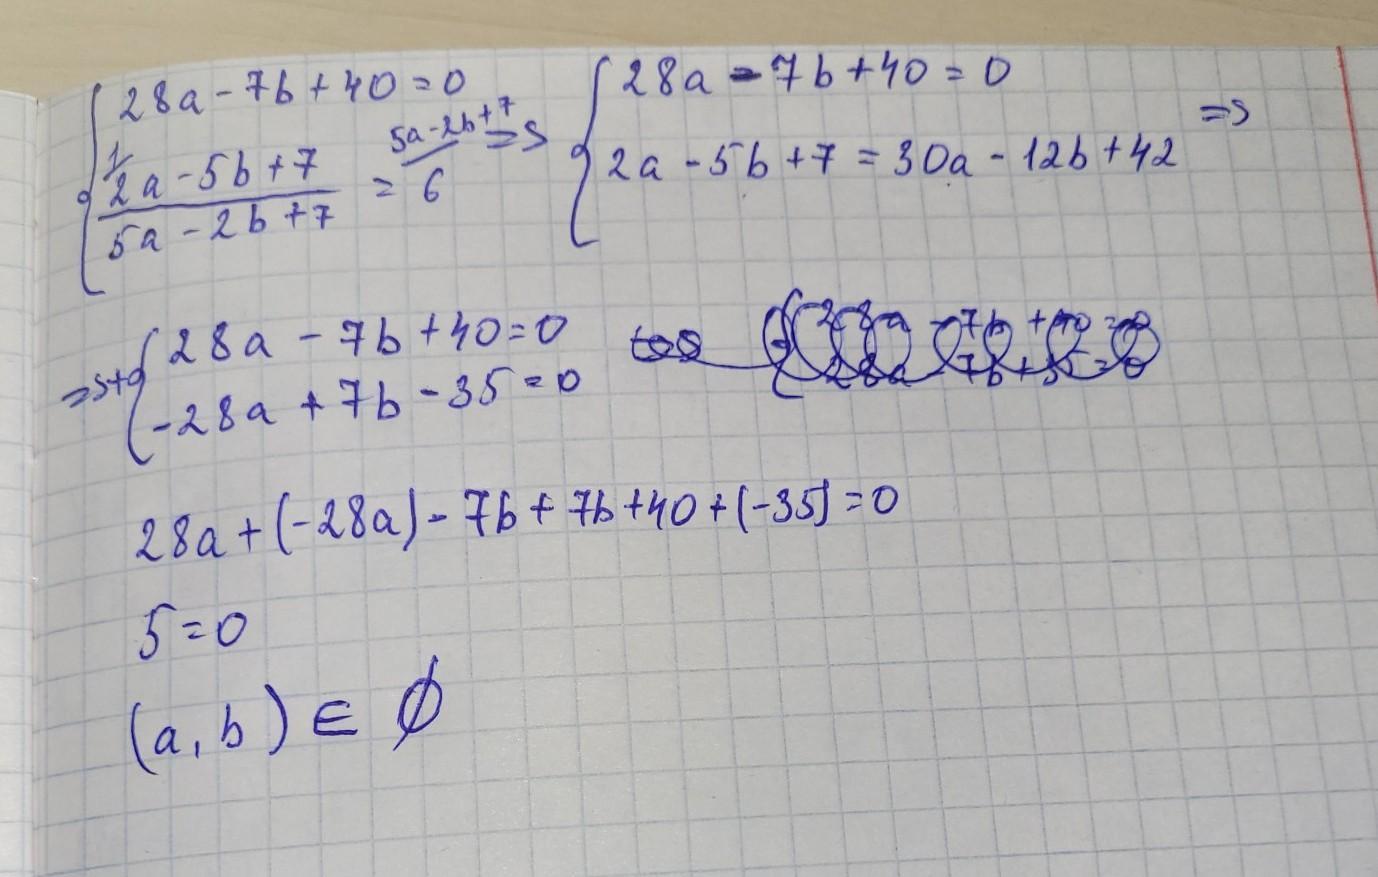 28a - 7b + 40 = 0
2a - 5b + 7 / 5a - 2b + 7 = 6 5a - 2b + 7 =>
28a - 7b + 40 = 0
2a - 5b + 7 = 30a - 12b + 42 =>
=> + 28a - 7b + 40 = 0
-28a + 7b - 35 = 0
28a + (-28a) - 7b + 7b + 40 + (-35) = 0
5 = 0
(a, b) ∈ ∅